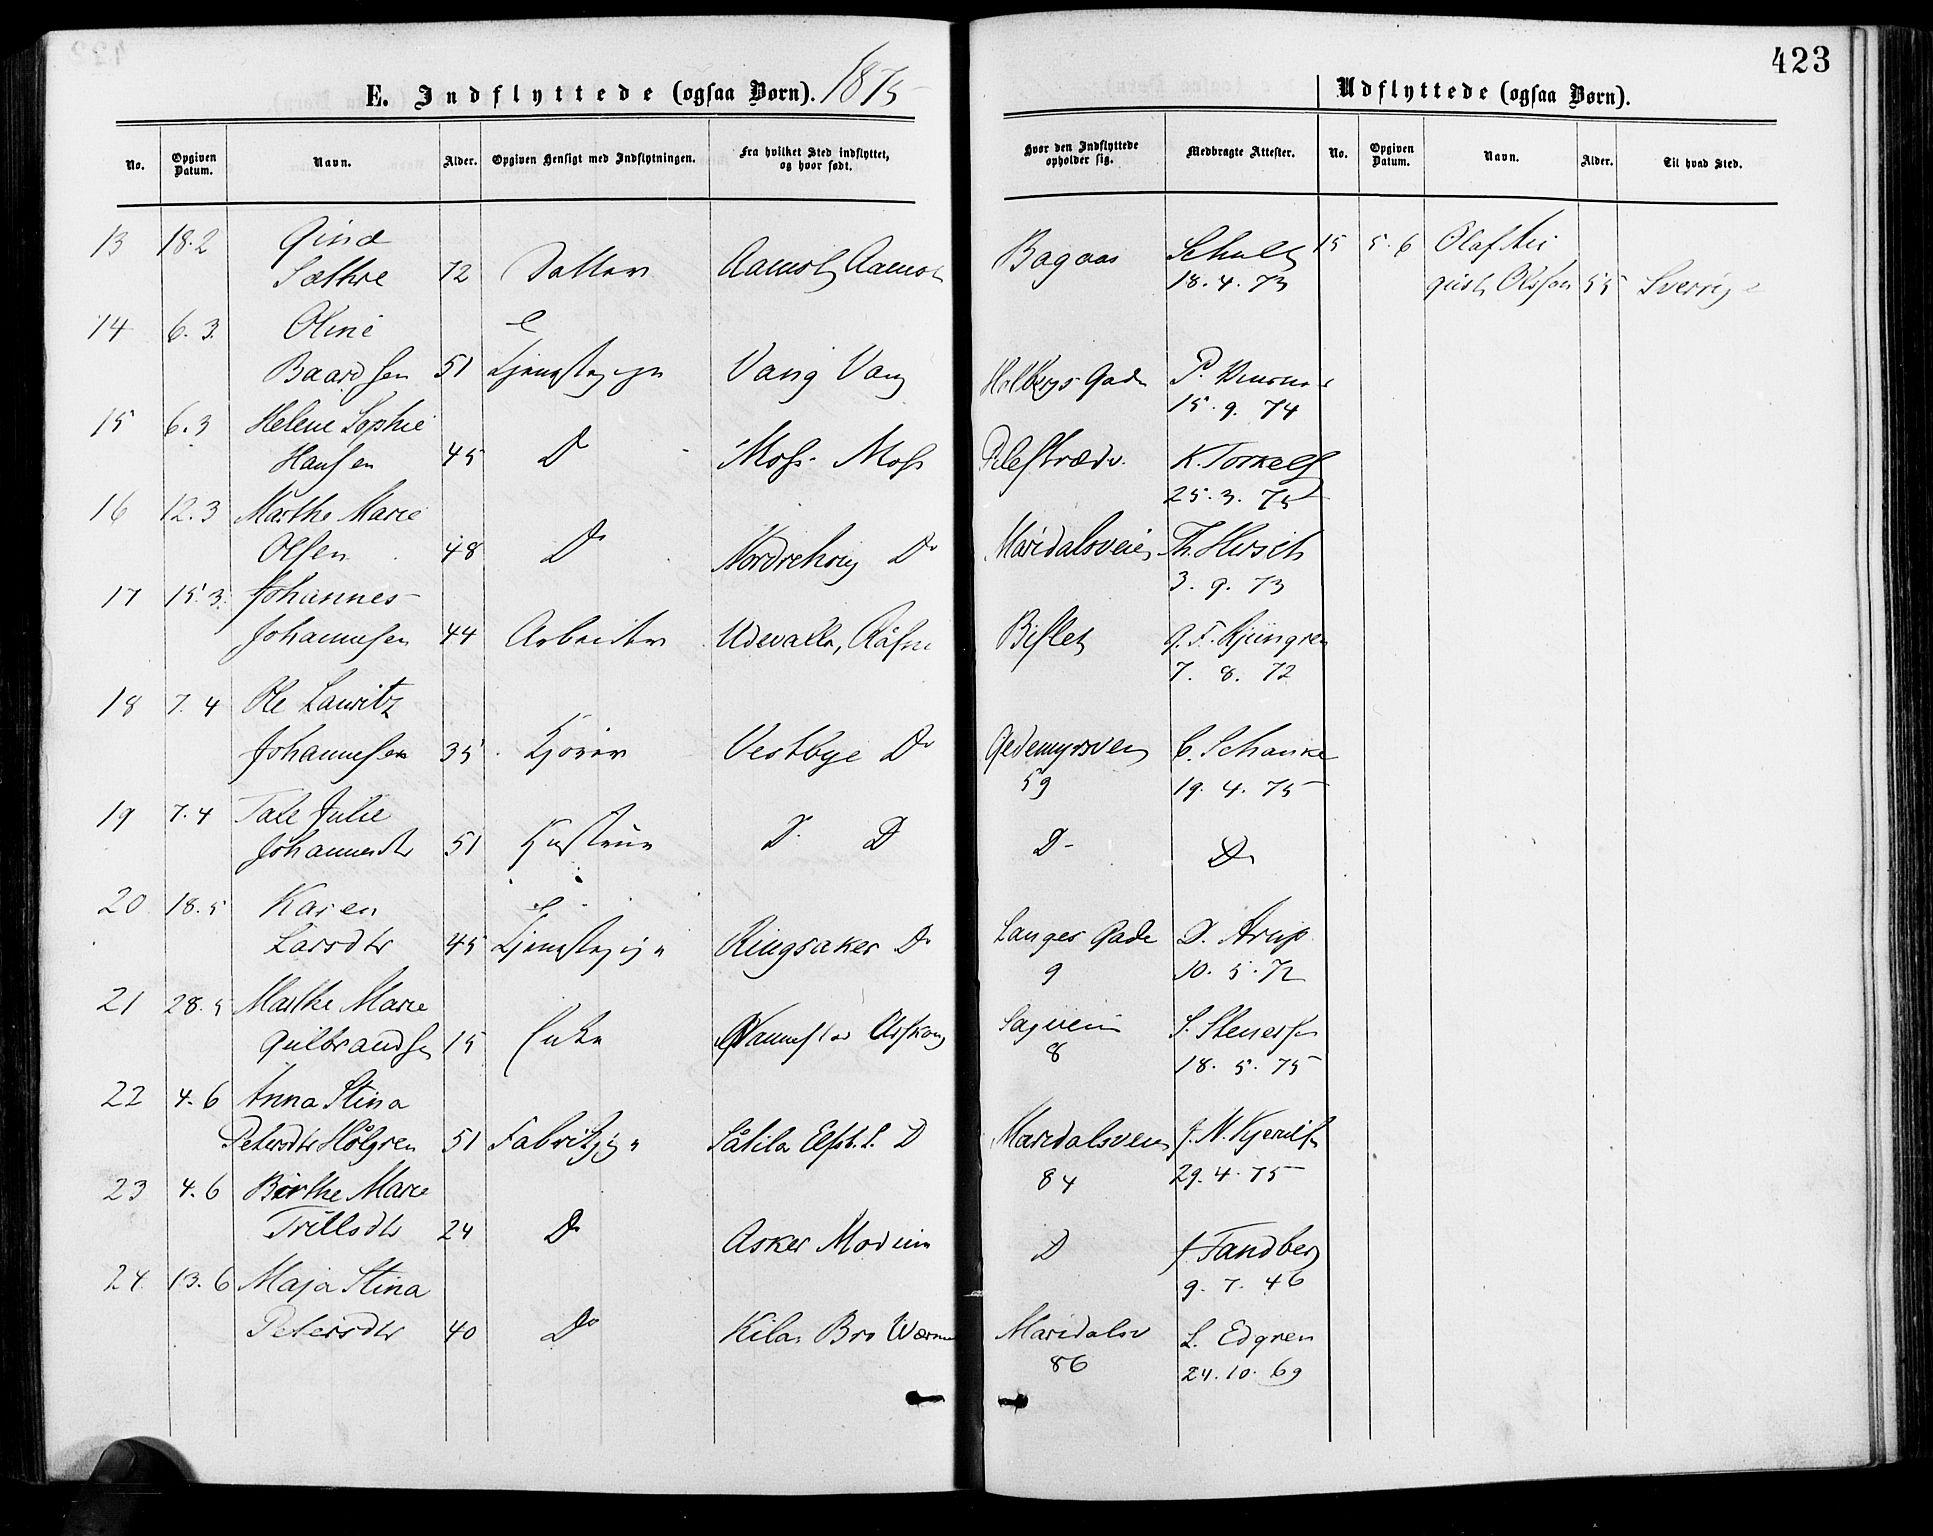 E. Indflyttede (ogsaa Børn). 1875
No. Opgiven Datum. Navn. Alder. Opgiven Hensigt med Indflytningen. Fra hvilket Sted indflyttet, og hvor født.
13 18.2 Gina
Sæthre 72 Datter Aamot Aamot
14 6.3. Oline
Baardsen 51 Tjenestepige Vang Vang
15 6.3 Helene Sophie
Hansen 45 Do Moss Moss
16 12.3 Marthe Marie
Olsen 48 Do Nordrehoug Do
17 15.3. Johannes
Johannesen 44 Arbeider Udevalla,
18 7.4 Ole Lauritz
Johannesen 35 Kjører Vestbye Do
19 7.4 Tale Julie
Johannesdtr 51 Hustrue D. D
20 18.5 Karen
Larsdtr 45 Tjenestepige Ringsaker Do
21 28.5 Marthe Marie
Gulbrandsen 15 Enke
22 4.6 Anna Stina
Petersdtr Hølgren 51 Fabrikpige Såtila Elfsb. L. D
23 4.6 Birthe Marie
Trulsdtr 24 Do Asker Modum
24. 13.6 Maja Stina
Petersdtr 40 Do Kila Bro Werm
423
Udflyttede (ogsaa Børn).
Hvor den Indflyttede opholder sig. Medbragte Attester. No. Opgiven Datum. Navn. Alder. Til hvad Sted.
Bagaas Schult 15 5.6 Olaf Au
18.4.73 gust Olsson 55 Sverige
Holbergs Gade P.
15.9.74
Pilestræde. K. Torkels
25.3.75
Maridalsveien Th. Hirsch
3.9.73
Bislet G. F. Ljungren
7.8.72
Gedemyrsvei C. Schanke
59 19.4.75
D- Do
Langes Gade D. Arup
9 10.5.72
Sagveien S. Stenersen
8 18.5.75
Maridalsveien J. N. Kjerulf
84 29.4.75
D J. Tandberg
9.7.46
Maridalsv L. Edgren
86 24.10.69